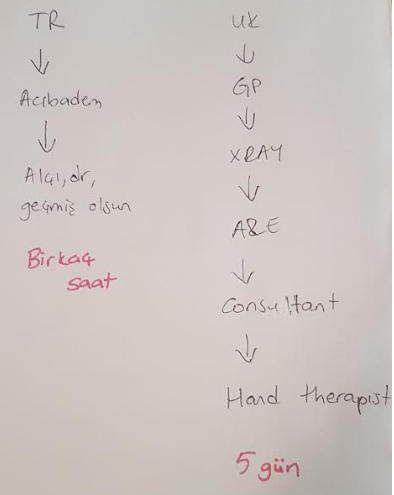 TR
↓
Acıbadem
↓
Alçı, dr,
geçmiş olsun
Birkaç
saat
UK
↓
GP
↓
XRAY
↓
A&E
↓
Consultant
↓
Hand therapist
5 gün